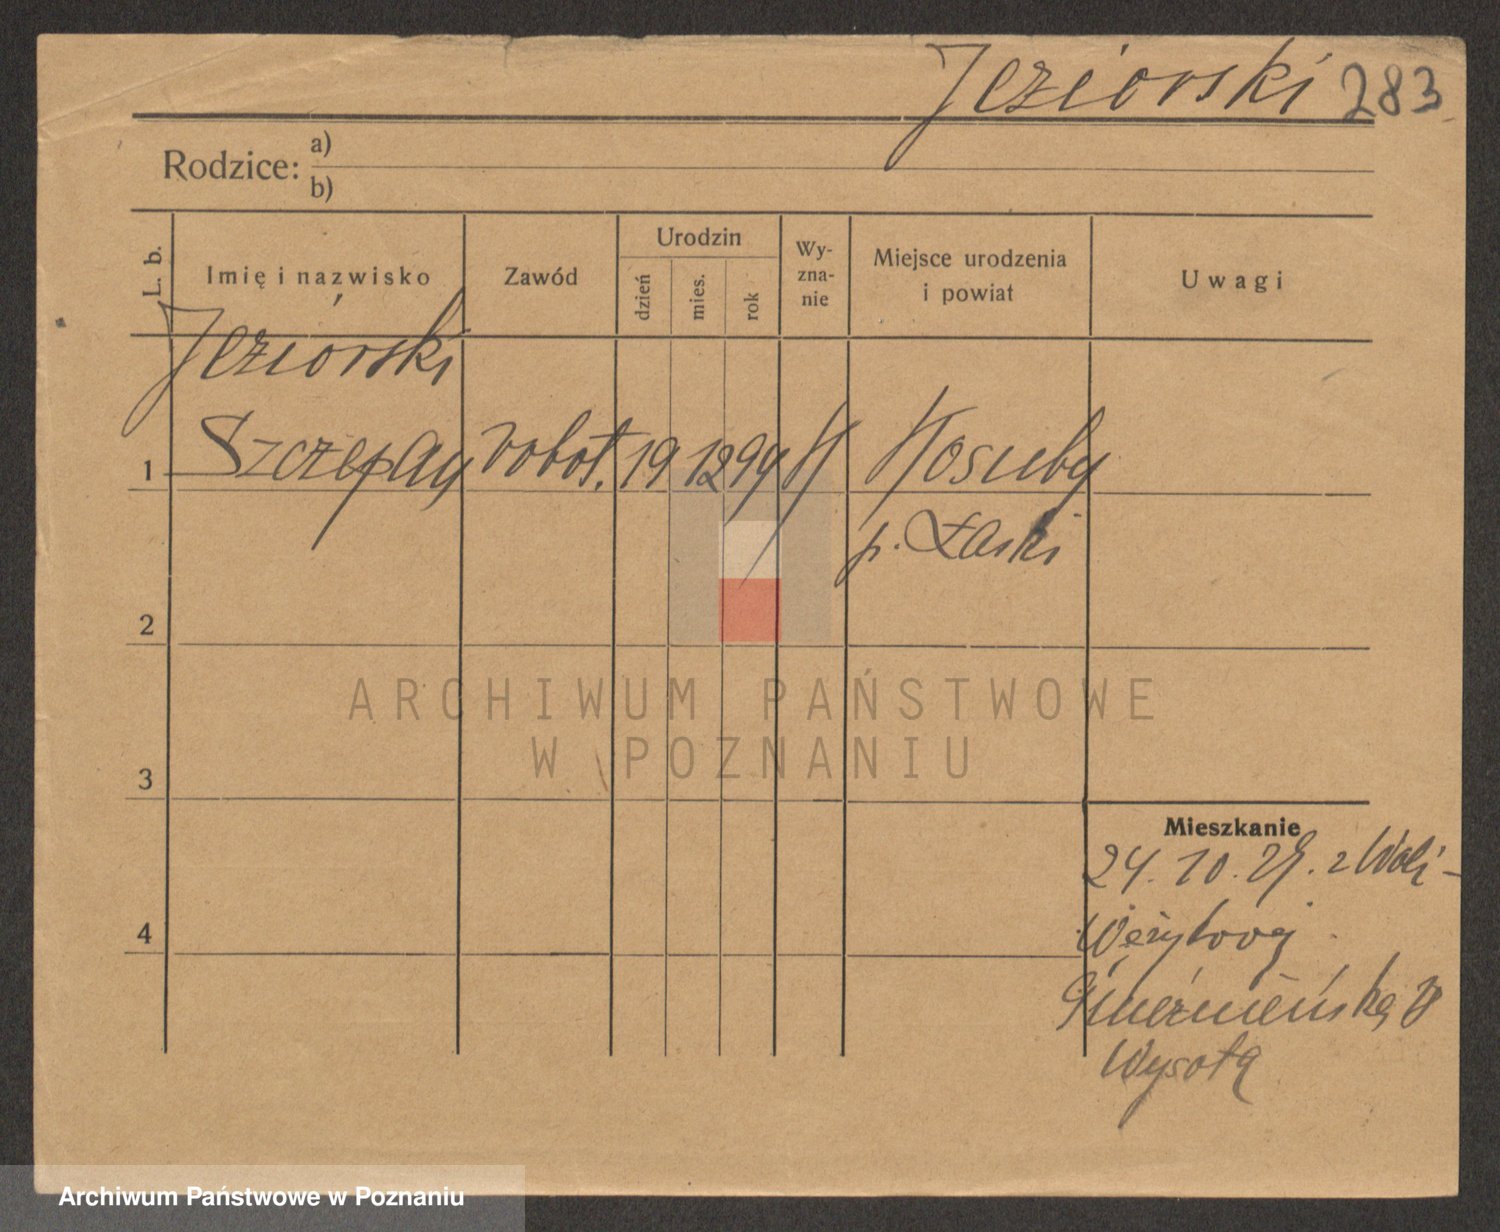 Jeziorski 283
Rodzice: a)
b)
L. b.
Imię i nazwisko
Zawód
Urodzin
dzień
mies.
rok
Wy-
zna-
nie
Miejsce urodzenia
i powiat
Uwagi
Jeziorski
1 Szczepan robot. 19 12 99
p. Łaski
2
3
4
Mieszkanie
24. 10. 29. z Woli-
Wężykowej
Gnieźnieńska
Wysoka
ARCHIWUM PAŃSTWOWE
W POZNANIU
Archiwum Państwowe w Poznaniu